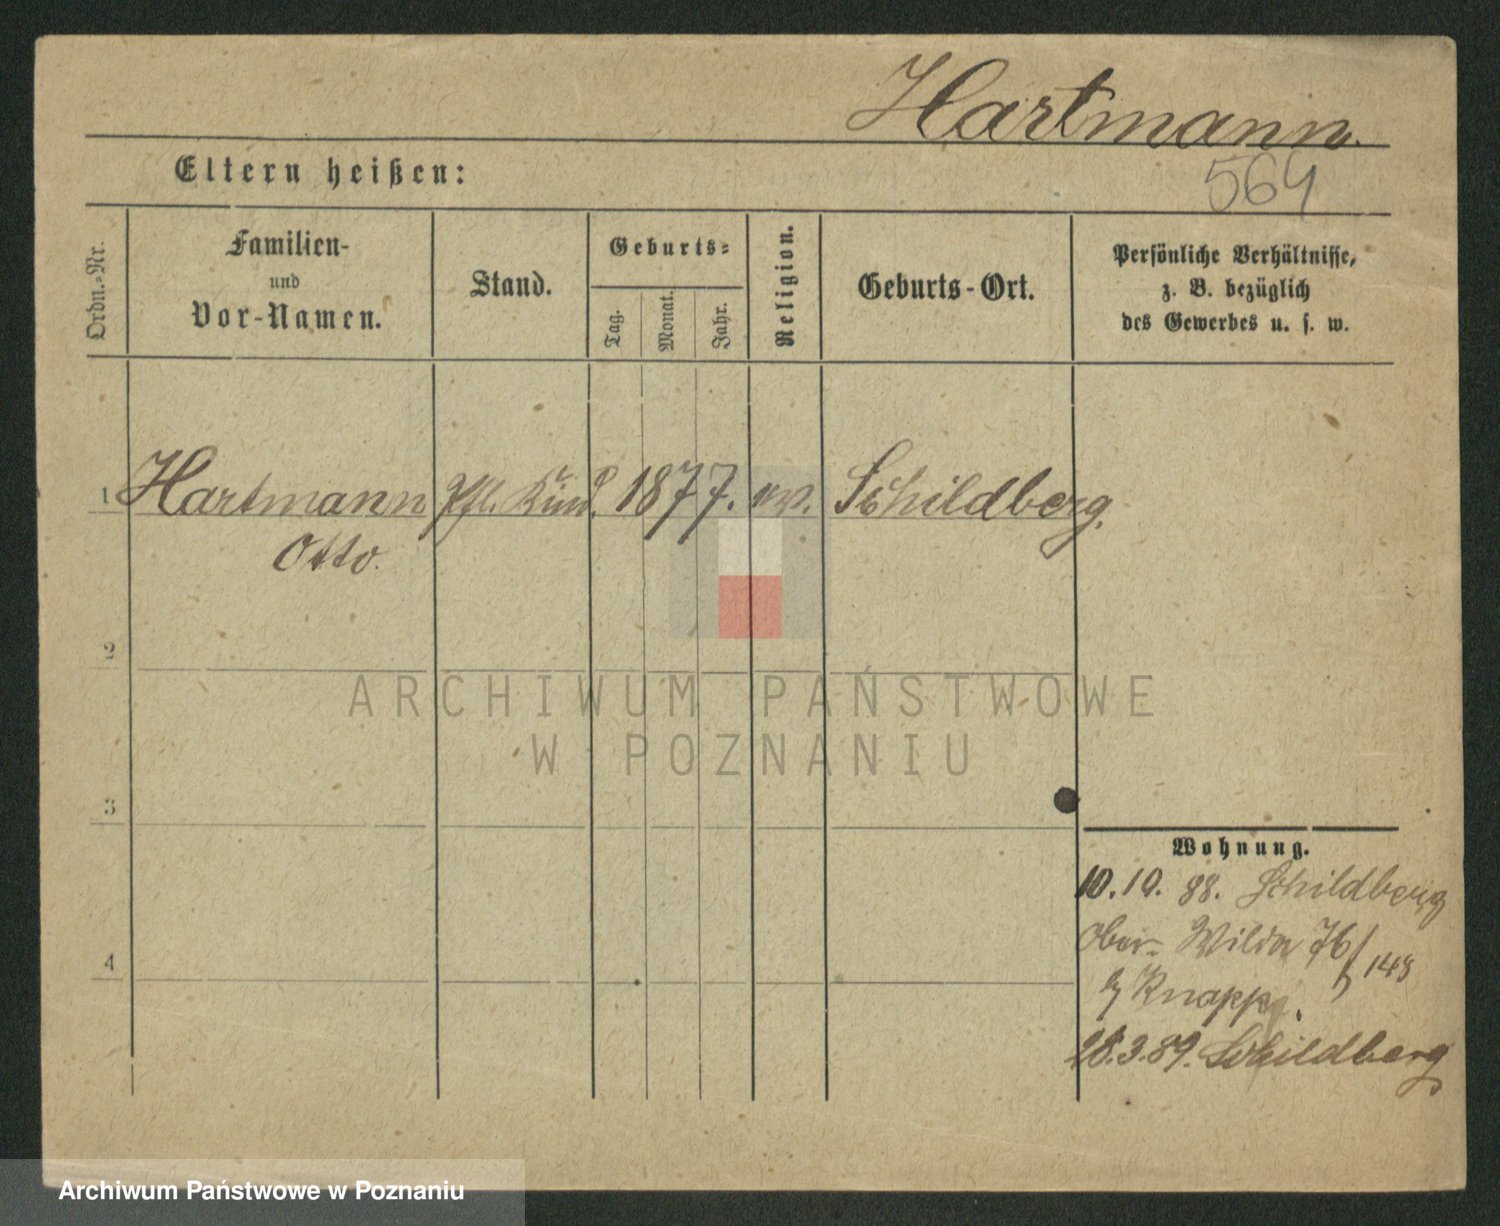 Hartmann.
Eltern heißen:
564
Ordn.-Nr.
Familien-
und
Vor-Namen.
Stand.
Geburts-
Tag.
Monat.
Jahr.
Religion.
Geburts-Ort.
Persönliche Verhältnisse,
z. B. bezüglich
des Gewerbes u. s. w.
1 Hartmann Pfl. Kind. 1877. ev. Schildberg.
Otto.
2
3
4
Wohnung.
10.10. 88. Schildberg
Ober- Wilda 76/148
b/ Knapp.
28.3.89. Schildberg
ARCHIWUM PAŃSTWOWE
W POZNANIU
Archiwum Państwowe w Poznaniu